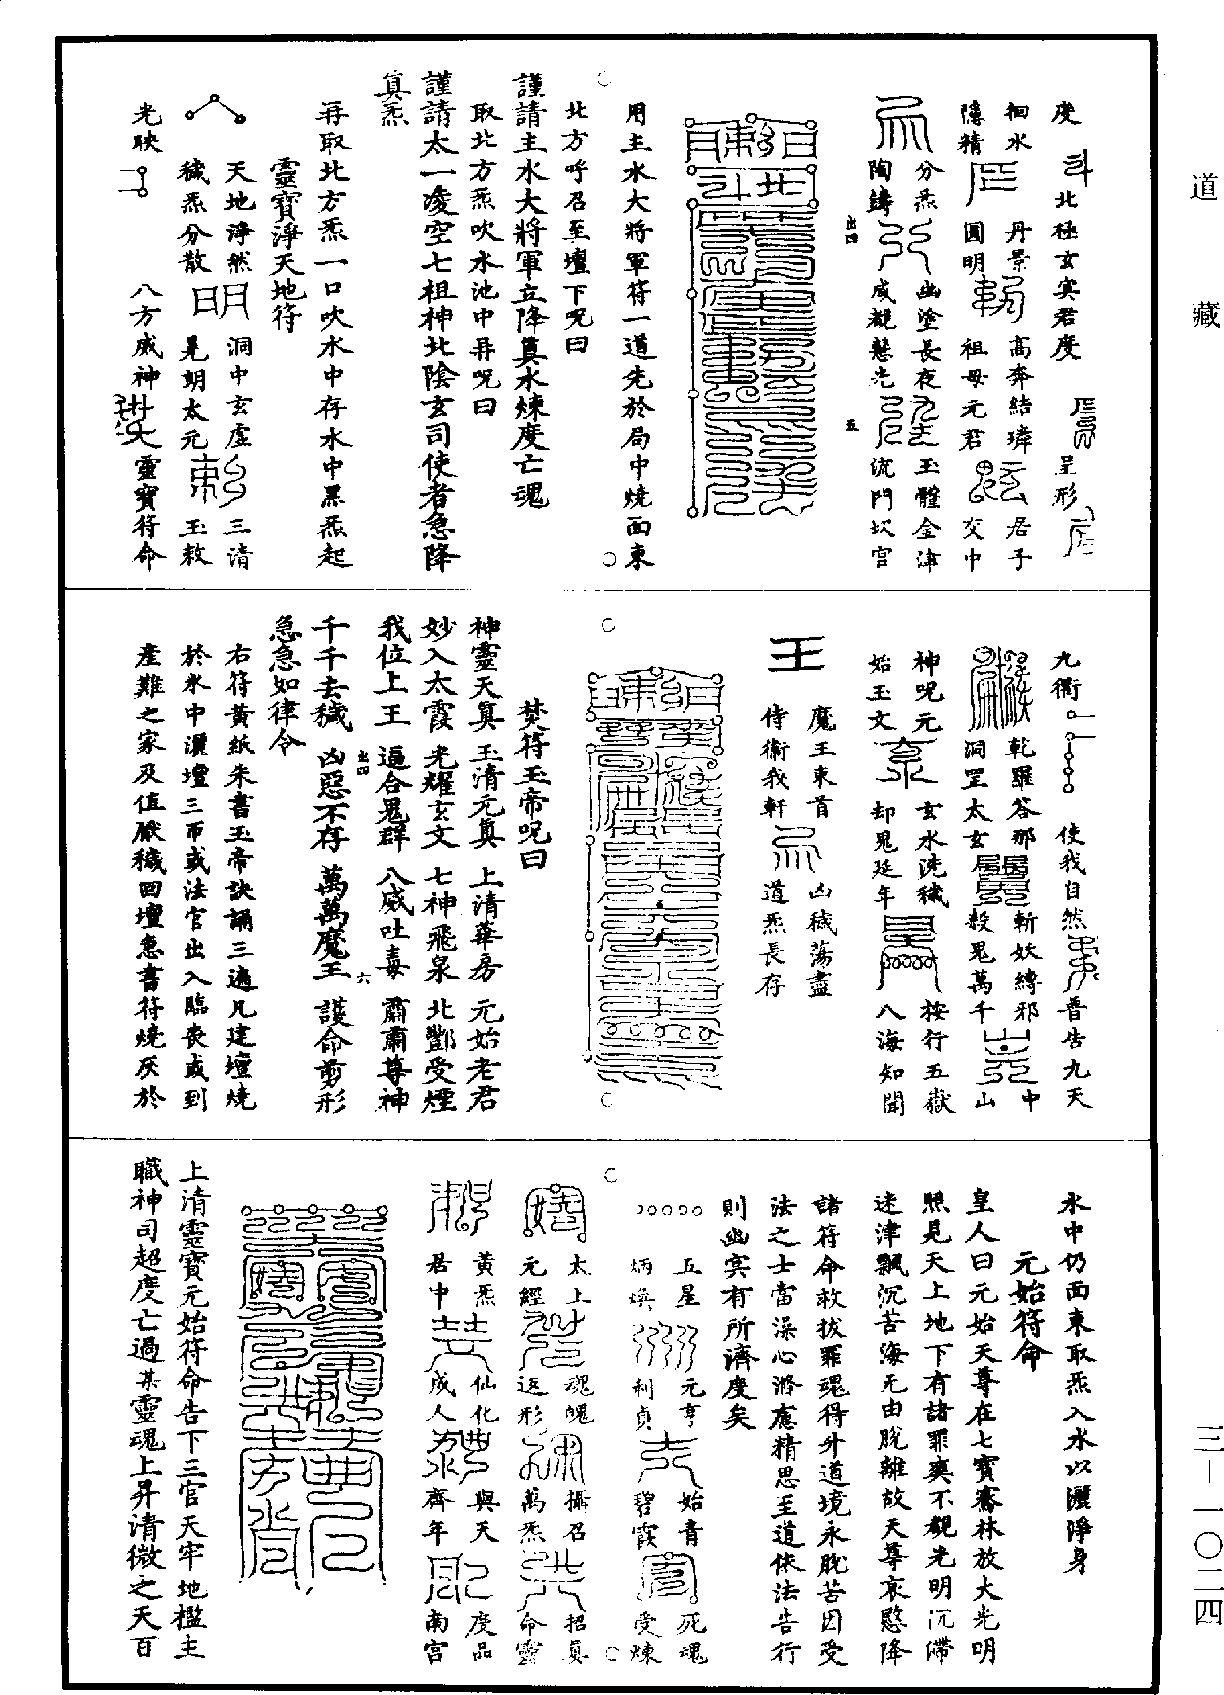 道藏
度　北極玄冥君度　呈形
徊水　丹景　高奔結璘　君子
隱精　圓明　祖母元君　交中
分炁　幽塗長夜　玉體金津
陶鑄　咸覩慧光　流門坎宮
出四　五
用主水大將軍符一道先於局中燒面東
北方呼召至壇下呪曰
謹請主水大將軍立降真水煉度亡魂
取北方炁吹水池中再呪曰
謹請太一凌空七祖神北陰玄司使者急降
真炁
再取北方炁一口吹水中存水中黑炁起
靈寶淨天地符
天地淨然　洞中玄虛　三清
穢炁分散　晃朗太元　玉敕
光映　八方威神　靈寶符命
九衢　使我自然　普告九天
乾羅答那　斬妖縛邪　中
洞罡太玄　殺鬼萬千　山
神呪元　玄水洗穢　按行五嶽
始玉文　却鬼延年　八海知聞
王　魔王束首　凶穢蕩盡
侍衛我軒　道炁長存
焚符玉帝呪曰
神靈天真　玉清元真　上清華房　元始老君
妙入太霞　光耀玄文　七神飛泉　北酆受煙
我位上王　逼合鬼群　八威吐毒　肅肅尊神
出四　六
千千去穢　凶惡不存　萬萬魔王　護命剪形
急急如律令
右符黃紙朱書玉帝訣誦三遍凡建壇燒
於水中灑壇三帀或法官出入臨喪或到
產難之家及值厭穢回壇急書符燒灰於
水中仍面東取炁入水以灑淨身
元始符命
皇人曰元始天尊在七寶騫林放大光明
照見天上地下有諸罪爽不覩光明沉滯
迷津飄沉苦海无由脫離故天尊哀愍降
諸符命救拔罪魂得升道境永脫苦因受
法之士當澡心滌慮精思至道依法告行
則幽冥有所濟度矣
五星　元亨　始青　死魂
炳煥　利貞　碧霞　受煉
太上　魂魄　攝召　招真
元經　返形　萬炁　命靈
黃炁　仙化　與天　度品
君中　成人　齊年　南宮
上清靈寶元始符命告下三官天牢地檻主
職神司超度亡過某靈魂上昇清微之天百
三－一〇二四